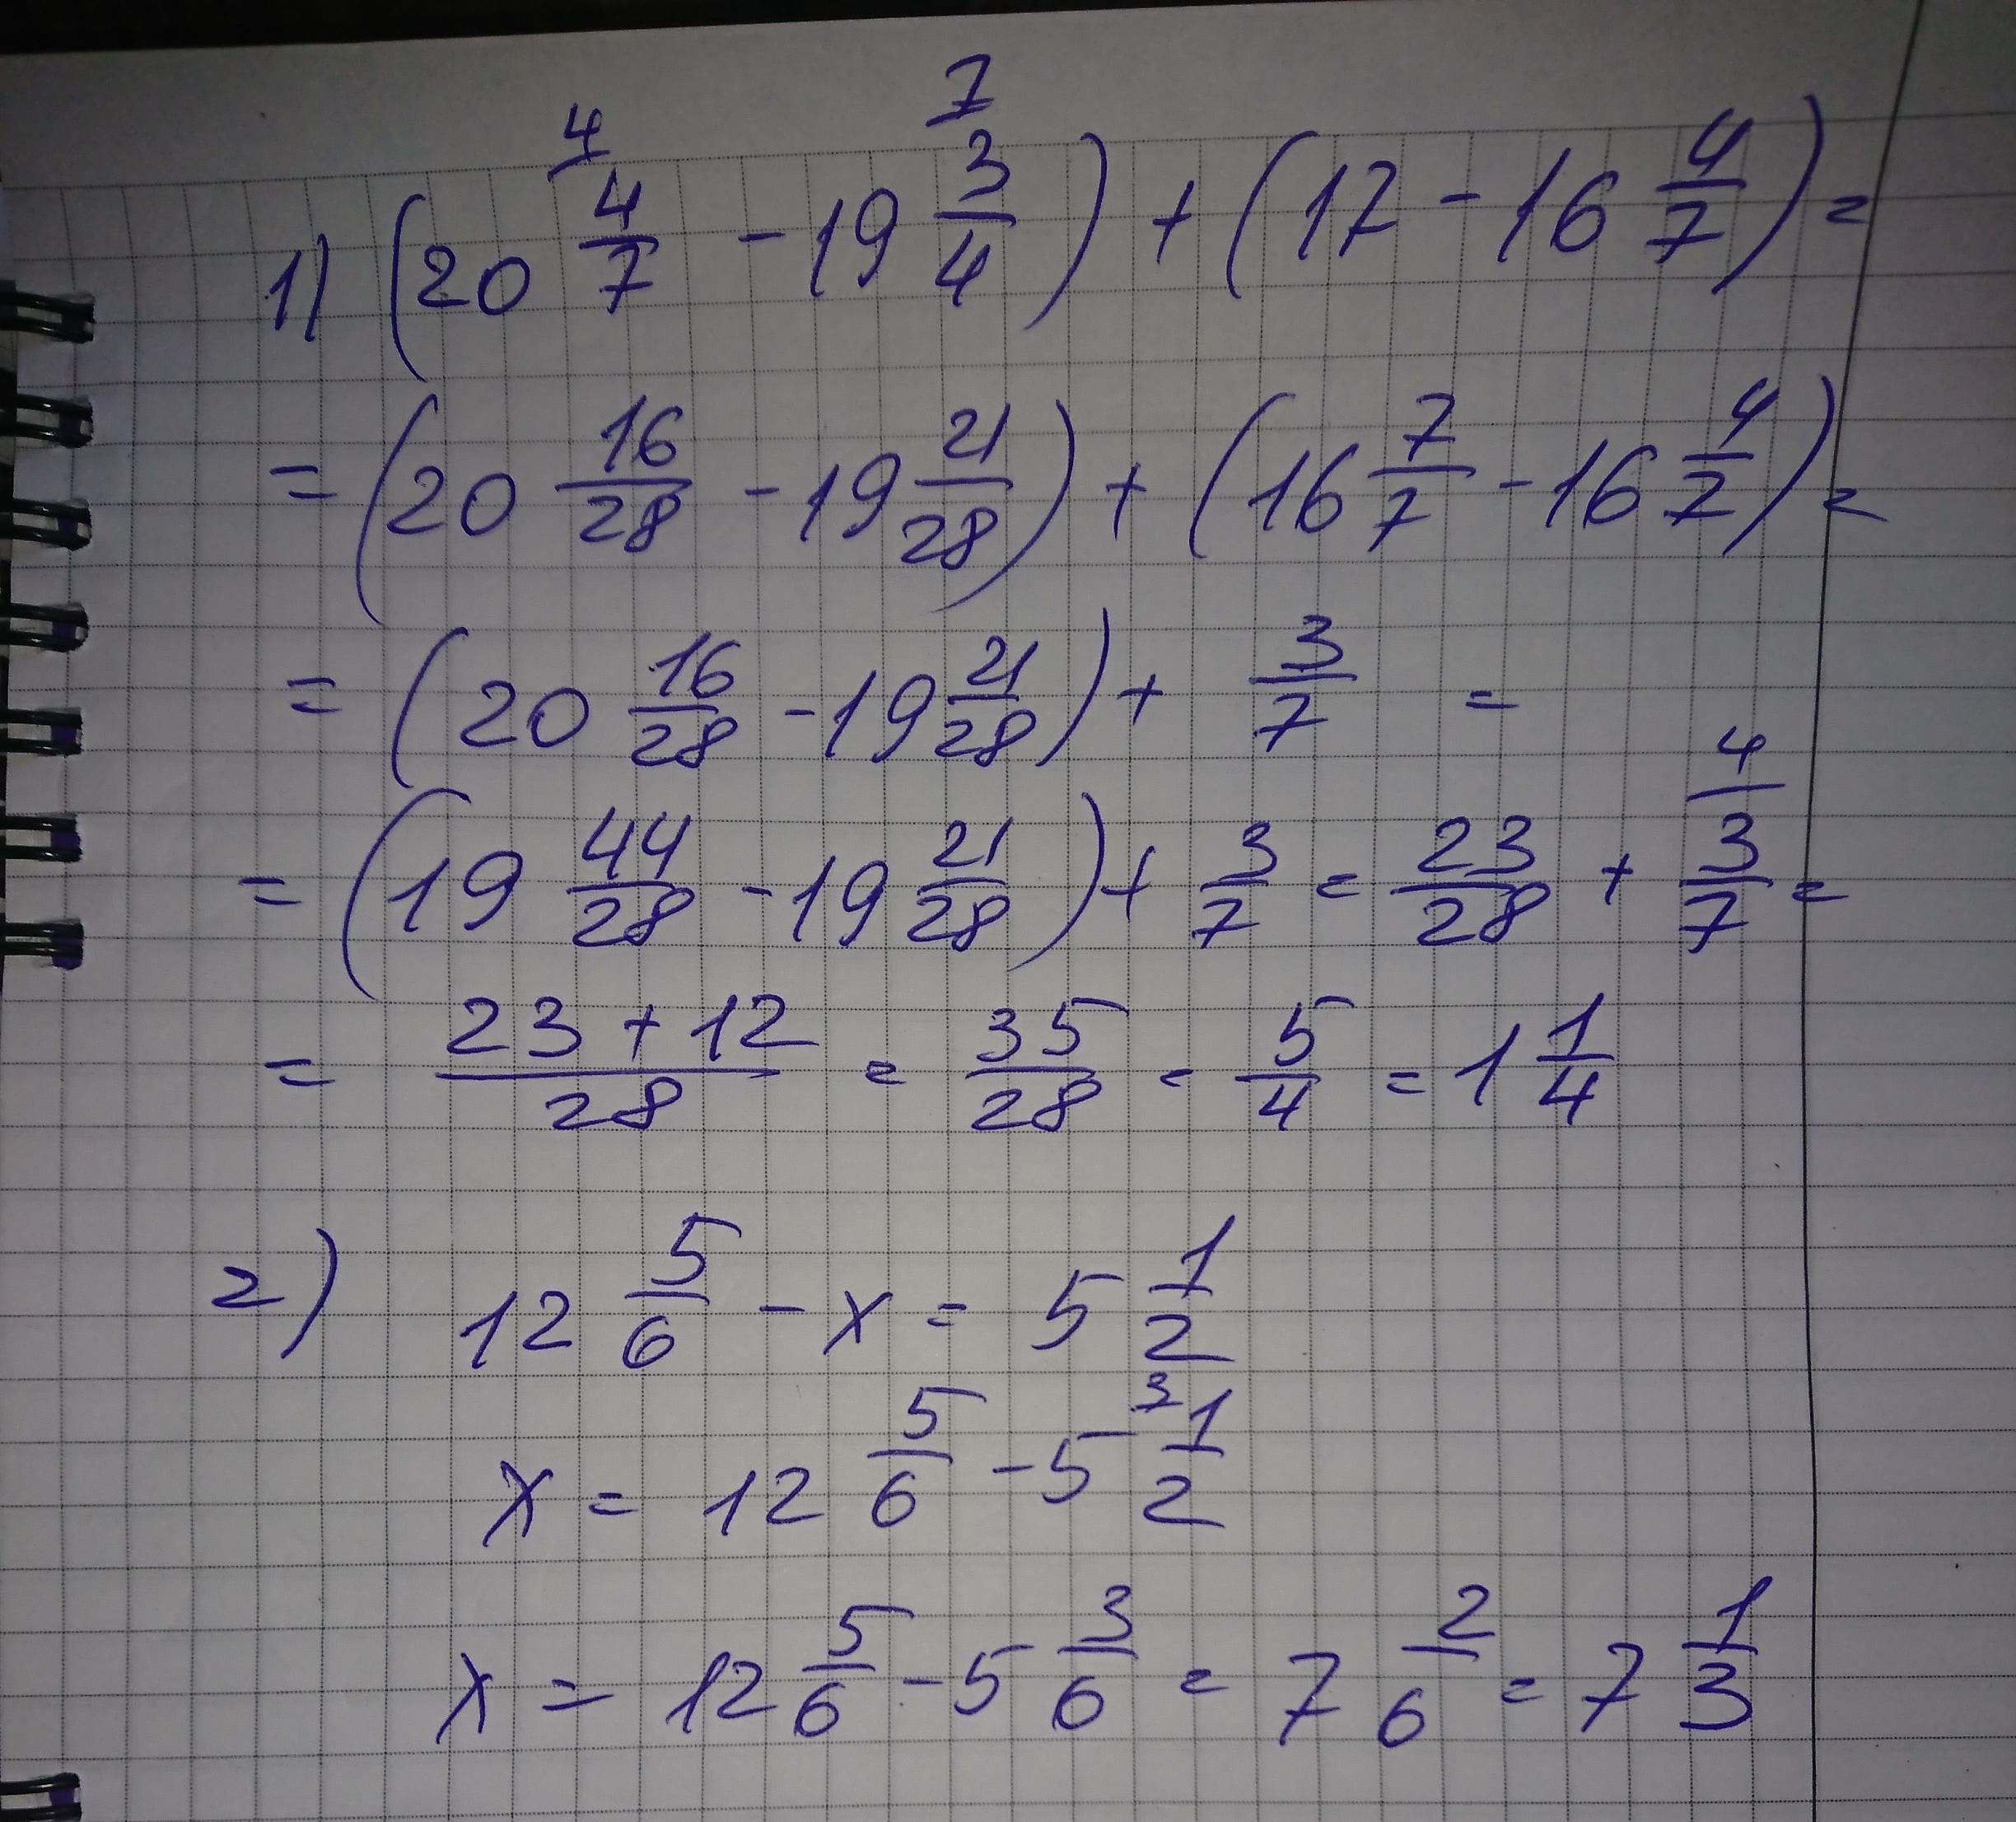 1) (20 4/7 - 19 3/4) + (17 - 16 4/7) =
= (20 16/28 - 19 21/28) + (16 7/7 - 16 4/7) =
= (20 16/28 - 19 21/28) + 3/7 =
= (19 44/28 - 19 21/28) + 3/7 = 23/28 + 3/7 =
= (23 + 12)/28 = 35/28 = 5/4 = 1 1/4
2) 12 5/6 - x = 5 1/2
x = 12 5/6 - 5 1/2
x = 12 5/6 - 5 3/6 = 7 2/6 = 7 1/3